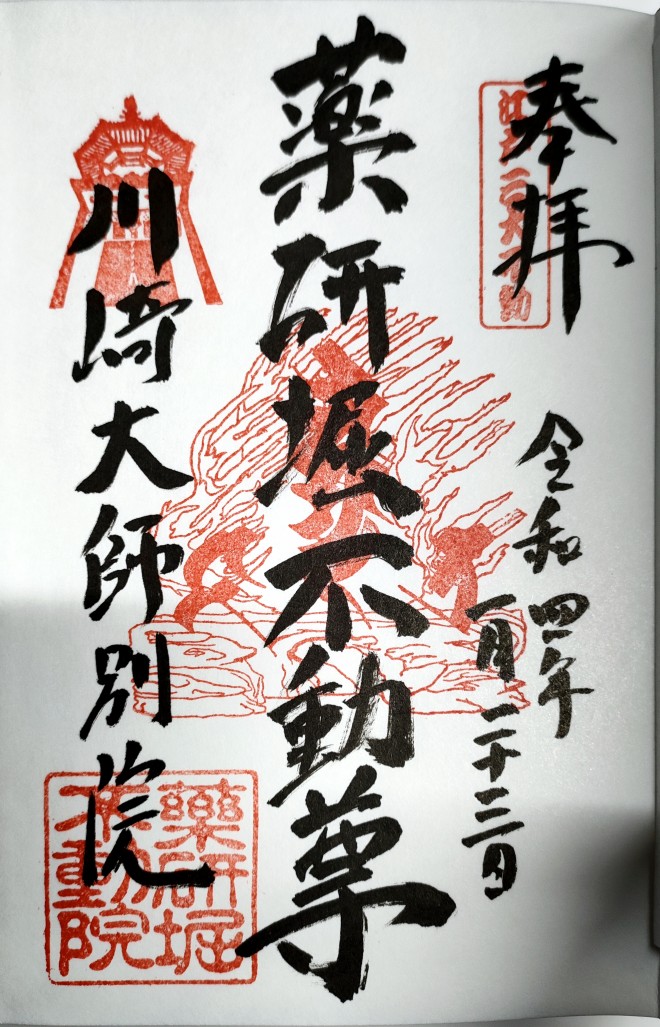 奉拝
江戸三大不動
令和四年
一月二十三日
薬研堀不動尊
川崎大師別院
薬研堀
不動院